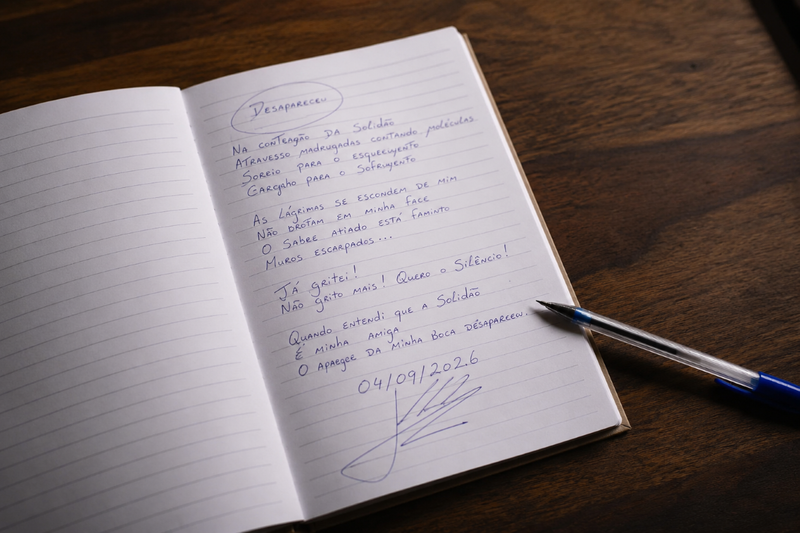 Desapareceu
Na conteação da Solidão
Atravesso madrugadas contando moléculas
Sorrio para o esquecymento
Gargaho para o Sofruyento
As lágrimas se escondem de mim
Não drotam em minha face
O Sabre atiado está faminto
Muros escarpados...
Já gritei!
Não grito mais! Quero o Silêncio!
Quando entendi que a Solidão
É minha amiga
O apaegee da minha boca désapareceu.
04/09/202.6